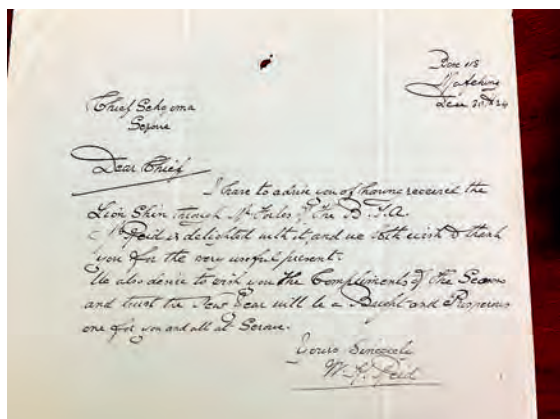 Box 115
Mafeking
Dec 20. 1924
Chief Sekgoma
Serowe
Dear Chief
I have to advise you of having received the
Lion Skin through Mr Forbes of the B.T.A.
Mrs Reid is delighted with it, and we both wish to thank
you for the very useful present.
We also desire to wish you the Compliments of the Season
and trust the New Year will be a Bright and Prosperous
one for you and all at Serowe.
Yours Sincerely
Reid